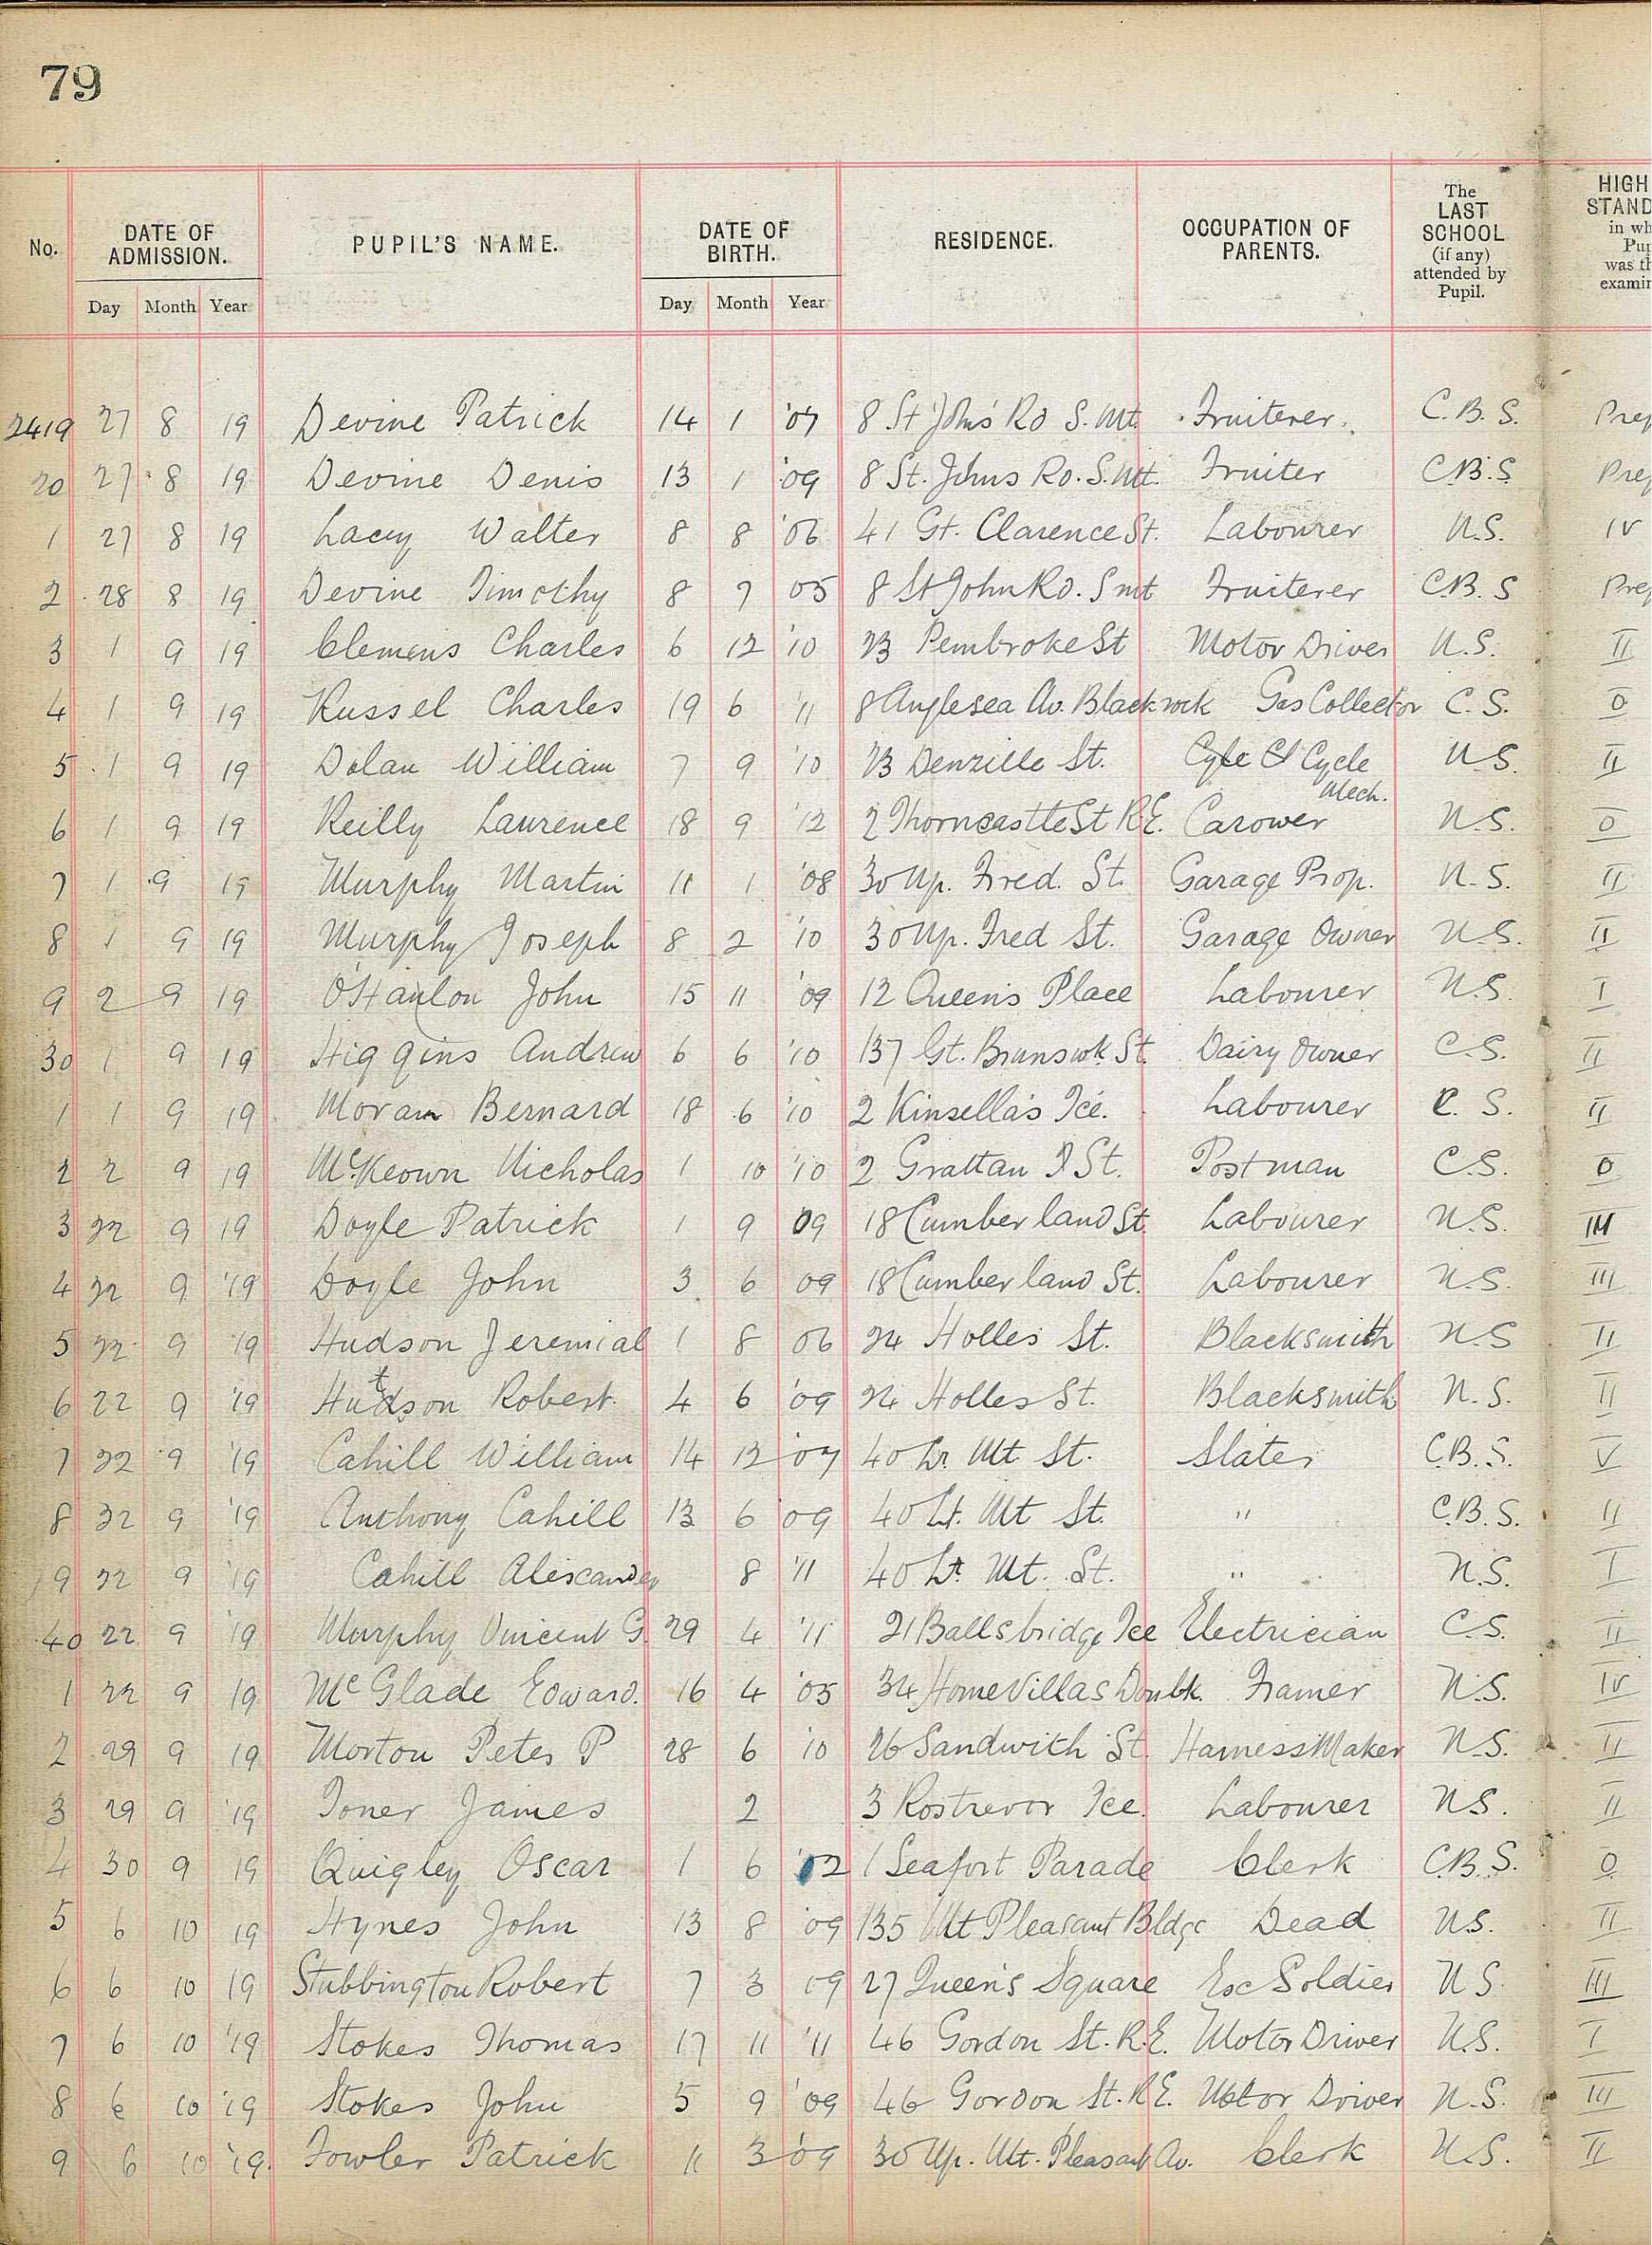 79
No. DATE OF ADMISSION. PUPIL'S NAME. DATE OF BIRTH. RESIDENCE. OCCUPATION OF PARENTS. The LAST SCHOOL (if any) attended by Pupil. HIGH STAND in wh Pup was th examin
Day Month Year Day Month Year
2419 27 8 19 Devine Patrick 14 1 '07 8 St Johns Rd S. Mt. Fruiterer. C.B.S. Prep
20 27 8 19 Devine Denis 13 1 '09 8 St. Johns Rd. S. Mt. Fruiter C.B.S Prep
1 27 8 19 Lacey Walter 8 8 '06 41 Gt. Clarence St. Labourer N.S. IV
2 28 8 19 Devine Timothy 8 7 05 8 St John Rd. S mt Fruiterer C.B.S Prep
3 1 9 19 Clemens Charles 6 12 '10 23 Pembroke St Motor Driver N.S. II
4 1 9 19 Russel Charles 19 6 '11 8 Anglesea Av. Blackrock Gas Collector C.S. 0
5 1 9 19 Dolan William 7 9 '10 23 Denzille St. Cycle Mech. N.S. II
6 1 9 19 Reilly Laurence 18 9 '12 2 Thorncastle St R.E. Carower N.S. 0
7 1 9 19 Murphy Martin 11 1 '08 30 Up. Fred. St. Garage Prop. N.S. II
8 1 9 19 Murphy Joseph 8 2 '10 30 Up. Fred St. Garage Owner N.S. II
9 2 9 19 O'Hanlon John 15 11 '09 12 Queen's Place Labourer N.S. I
30 1 9 19 Higgins Andrew 6 6 '10 137 Gt. Brunswk. St. Dairy Owner C.S. II
1 1 9 19 Moran Bernard 18 6 '10 2 Kinsella's Tce. Labourer C.S. II
2 2 9 19 McKeown Nicholas 1 10 '10 2 Grattan St. Postman C.S. 0
3 22 9 19 Doyle Patrick 1 9 09 18 Cumberland St. Labourer N.S. III
4 22 9 '19 Doyle John 3 6 09 18 Cumberland St. Labourer N.S. III
5 22 9 '19 Hudson Jeremiah 1 8 06 24 Holles St. Blacksmith N.S II
6 22 9 '19 Hudson Robert 4 6 '09 24 Holles St. Blacksmith N.S. II
7 22 9 '19 Cahill William 14 12 '07 40 Lr. Mt. St. Slater C.B.S. V
8 22 9 '19 Anthony Cahill 13 6 09 40 Lr. Mt St. " C.B.S. II
9 22 9 '19 Cahill Alexander 8 '11 40 Lr. Mt. St. " N.S. I
40 22 9 '19 Murphy Vincent G. 29 4 '11 21 Ballsbridge Tce Electrician C.S. II
1 22 9 19 McGlade Edward. 16 4 '05 34 Home Villas Donbk. Framer N.S. IV
2 29 9 19 Morton Peter P 28 6 '10 26 Sandwith St. Harness Maker N.S. II
3 29 9 '19 Toner James 2 3 Rostrevor Tce. Labourer N.S. II
4 30 9 19 Quigley Oscar 1 6 '02 1 Seafort Parade Clerk C.B.S. 0
5 6 10 19 Hynes John 13 8 '09 135 Mt Pleasant Bldgs Dead N.S. II
6 6 10 19 Stubbington Robert 7 3 09 27 Queen's Square Ex Soldier N.S. III
7 6 10 '19 Stokes Thomas 17 11 '11 46 Gordon St. R.E. Motor Driver N.S. I
8 6 10 '19 Stokes John 5 9 '09 46 Gordon St. R.E. Motor Driver N.S. III
9 6 10 '19. Fowler Patrick 11 3 '09 30 Up. Mt. Pleasant Av. Clerk N.S. II